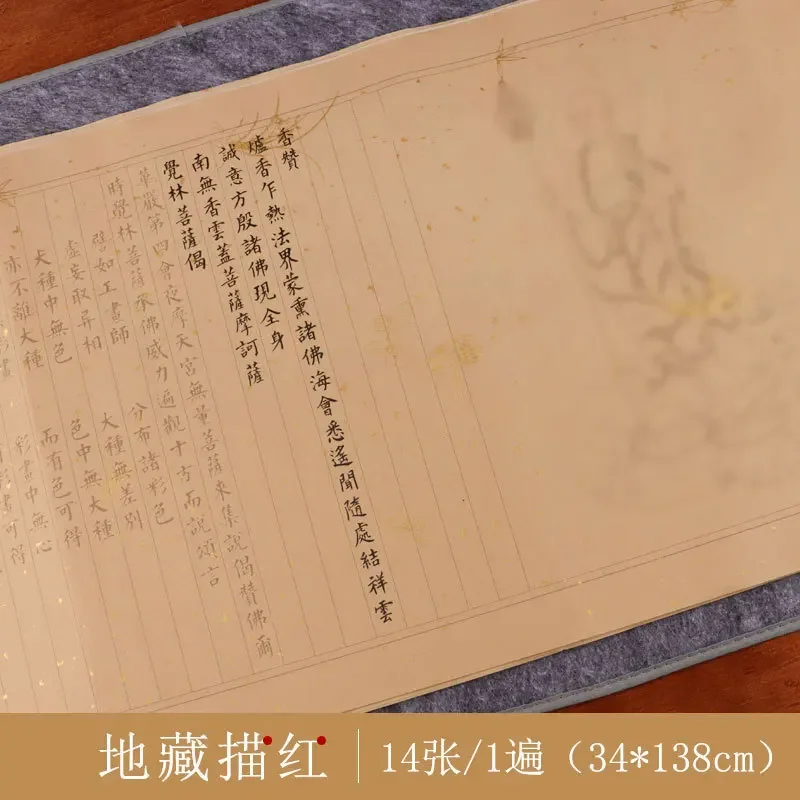 香赞
爐香乍熱法界蒙熏諸佛海會悉遙聞隨處結祥雲
誠意方殷諸佛現全身
南無香雲蓋菩薩摩訶薩
覺林菩薩偈
華嚴第四會夜摩天宮無量菩薩來集說偈贊佛爾
時覺林菩薩承佛威力遍觀十方而說頌言
譬如工畫師 分布諸彩色
虛妄取異相 大種無差別
大種中無色 色中無大種
亦不離大種 而有色可得
彩畫中無心
地藏描红
14张/1遍（34*138cm）